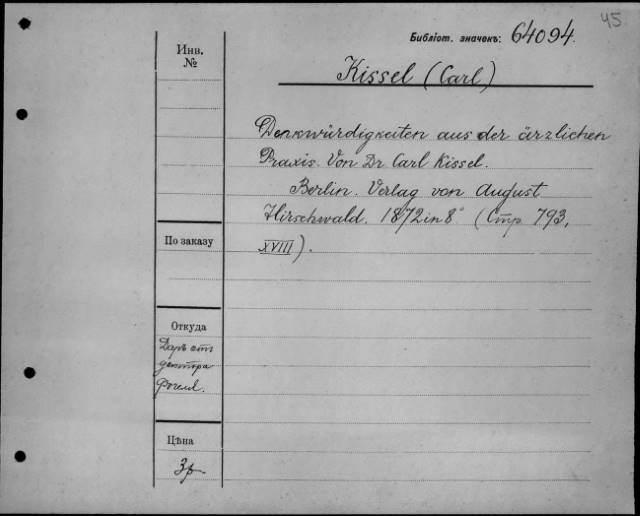 45
Библіот. значекъ: 64094.
Инв.
№
Kissel (Carl)
Denkwürdigkeiten aus der ärzlichen
Praxis. Von Dr. Carl Kissel.
Berlin. Verlag von August
Hirschwald. 1872 in 8° (Стр 793,
XVIII).
По заказу
Откуда
Даръ отъ
доктора
Фогеля.
Цѣна
3р.